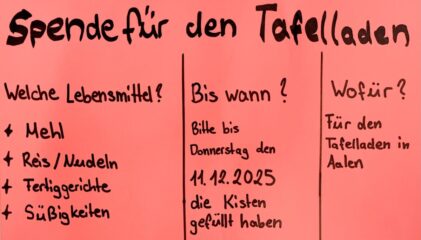 Spende für den Tafelladen
Welche Lebensmittel?
+ Mehl
+ Reis/Nudeln
+ Fertiggerichte
+ Süßigkeiten
Bis wann?
Bitte bis
Donnerstag den
11.12.2025
die Kisten
gefüllt haben
Wofür?
Für den
Tafelladen in
Aalen